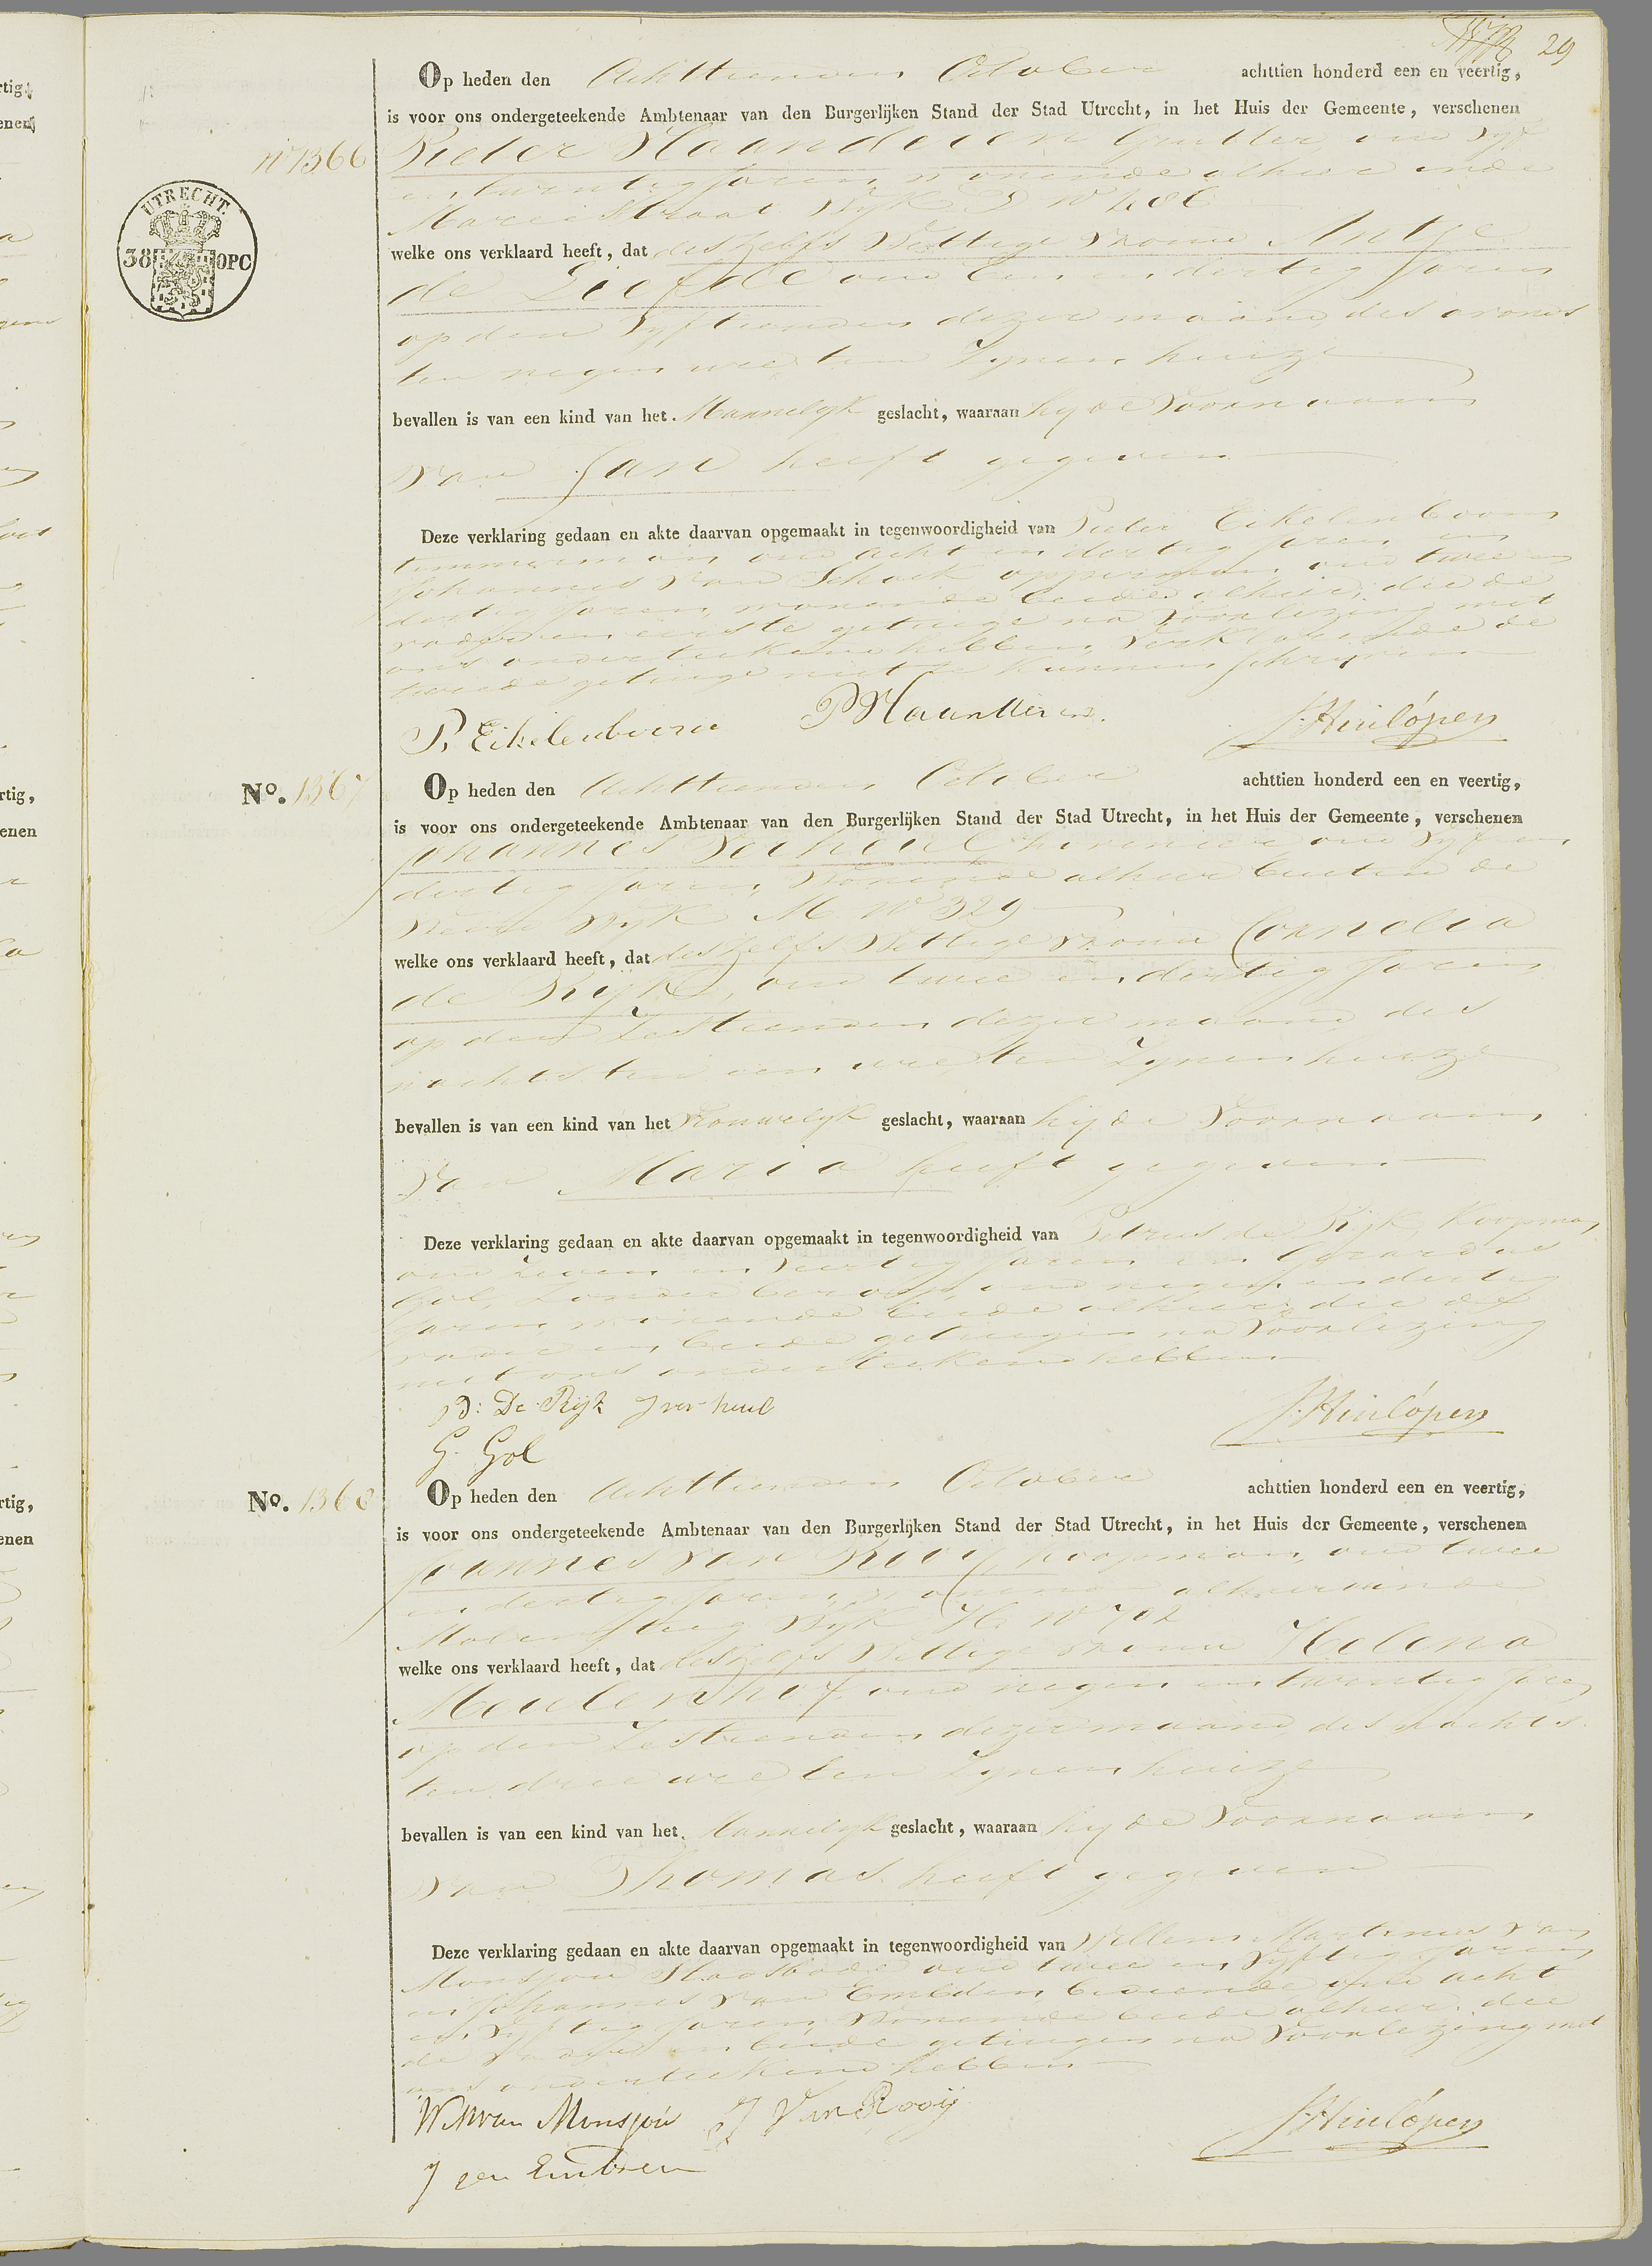 29
Op heden den Achttienden October achttien honderd een en veertig,
is voor ons ondergeteekende Ambtenaar van den Burgerlijken Stand der Stad Utrecht, in het Huis der Gemeente, verschenen
No 1366
Pieter Haanderen Grutter, oud Vyf
en twintig Jaren wonende alhier in de
straat Wyk
UTRECHT.
38 OPC
welke ons verklaard heeft, dat deszelfs Wettige Vrouw Antje
de Liefde oud een en dertig Jaren
op den Vyftienden dezer maand des avonds
ten negen ure ten Zynen huize
bevallen is van een kind van het Mannelyk geslacht, waaraan hy de Voornaam
van Jan heeft gegeven
Deze verklaring gedaan en akte daarvan opgemaakt in tegenwoordigheid van Pieter Eikelenboom
timmerman oud acht en dertig Jaren en
Johannes van Schaik opperman, oud twee en
dertig Jaren, wonende beide alhier, die de
vader en eerste getuige na Voorlezing met
ons onderteekend hebben, Verklarende de
tweede getuige niet te kunnen schryven
P. Eikelenboom PHaanderen. J. Hinlópen
No. 1367 Op heden den Achttienden October achttien honderd een en veertig,
is voor ons ondergeteekende Ambtenaar van den Burgerlijken Stand der Stad Utrecht, in het Huis der Gemeente, verschenen
Johannes Verheul hovenier oud Vyf en
dertig Jaren, Wonende alhier buiten de
Wyk M No 329
welke ons verklaard heeft, dat deszelfs Wettige Vrouw Cornelia
de Ryk, oud twee en dertig Jaren
op den Zestienden dezer maand des
nachts ten een ure ten Zynen huize
bevallen is van een kind van het Vrouwelyk geslacht, waaraan hy de Voornaam
van Maria heeft gegeven
Deze verklaring gedaan en akte daarvan opgemaakt in tegenwoordigheid van Petrus de Ryk Koopman
oud Zeven en Veertig Jaren en Gerardus
Gol, Zonder beroep, oud negen en dertig
Jaren, wonende beide alhier, die de
vader en beide getuigen na Voorlezing
met ons onderteekend hebben
P: De Rijk J verheul J. Hinlópen
G. Gol
No. 1368 Op heden den Achttienden October achttien honderd een en veertig,
is voor ons ondergeteekende Ambtenaar van den Burgerlijken Stand der Stad Utrecht, in het Huis der Gemeente, verschenen
Joannes van Rooy koopman, oud twee
en dertig Jaren, wonende alhier in de
Molensteeg Wyk H No 702
welke ons verklaard heeft, dat deszelfs Wettige Vrouw Helena
Meulenhof oud negen en twintig Jaren
op den Zestienden dezer maand, des nachts
ten drie ure ten Zynen huize
bevallen is van een kind van het Mannelyk geslacht, waaraan hy de Voornaam
van Thomas heeft gegeven
Deze verklaring gedaan en akte daarvan opgemaakt in tegenwoordigheid van Willem Martinus van
Monsjou Stadsbode oud twee en Vyftig Jaren
en Johannes van Embden bediende oud acht
en Vyftig Jaren Wonende beide alhier, die
de vader en beide getuigen na Voorlezing met
ons onderteekend hebben
WMvan Monsjou J Van Rooij J. Hinlópen
J van Embden